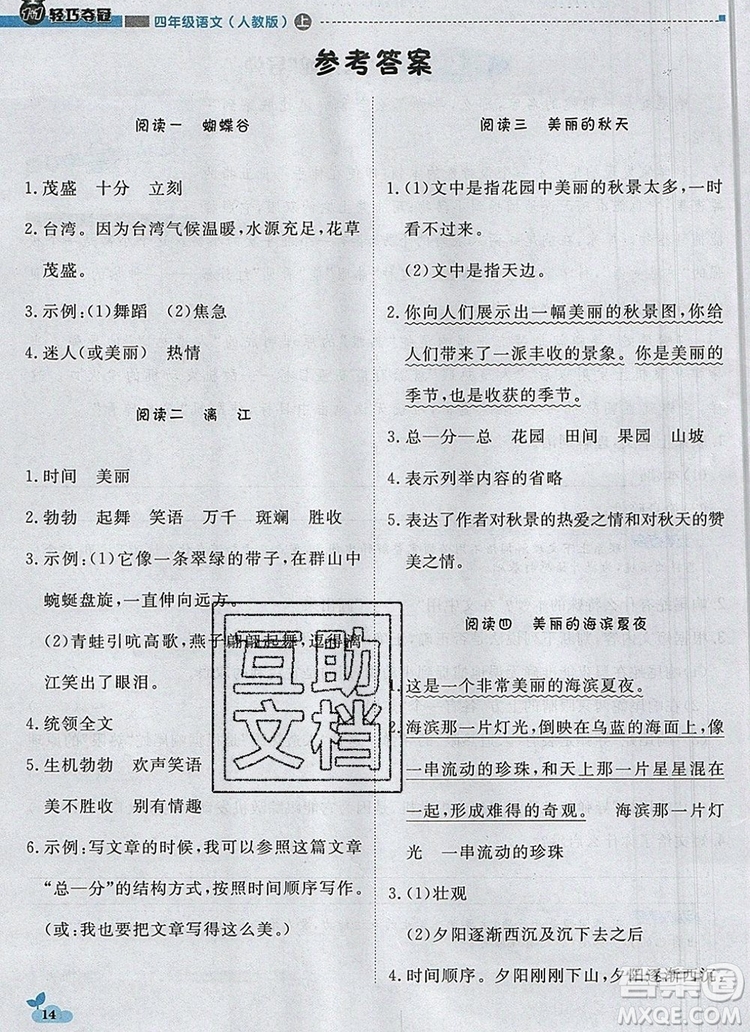 1+1 轻巧夺冠 四年级语文（人教版）上
参考答案
阅读一 蝴蝶谷
1.茂盛 十分 立刻
2.台湾。因为台湾气候温暖，水源充足，花草
茂盛。
3.示例：(1)舞蹈 (2)焦急
4.迷人(或美丽) 热情
阅读二 漓江
1.时间 美丽
2.勃勃 起舞 笑语 万千 斑斓 胜收
3.示例：(1)它像一条翠绿的带子，在群山中
蜿蜒盘旋，一直伸向远方。
(2)青蛙引吭高歌，燕子翩翩起舞，逗得漓
江笑出了眼泪。
4.统领全文
5.生机勃勃 欢声笑语
美不胜收 别有情趣
6.示例：写文章的时候，我可以参照这篇文章
“总—分”的结构方式，按时间顺序写作。
(或：我也要把文章写得这么美。)
阅读三 美丽的秋天
1.(1)文中是指花园中美丽的秋景太多，一时
看不过来。
(2)文中是指天边。
2.你向人们展示出一幅美丽的秋景图，你给
人们带来了一派丰收的景象。你是美丽的
季节，也是收获的季节。
3.总—分—总 花园 田间 果园 山坡
4.表示列举内容的省略
5.表达了作者对秋景的热爱之情和对秋天的赞
美之情。
阅读四 美丽的海滨夏夜
1.这是一个非常美丽的海滨夏夜。
2.海滨那一片灯光，倒映在乌蓝的海面上，像
一串流动的珍珠，和天上那一片星星混在
一起，形成难得的奇观。 海滨那一片灯
光 一串流动的珍珠
3.(1)壮观
(2)夕阳逐渐西沉及沉下去以后
4.时间顺序。夕阳刚刚下山 夕阳逐渐西沉
互助
文档
14
答案圈
MXQE.COM